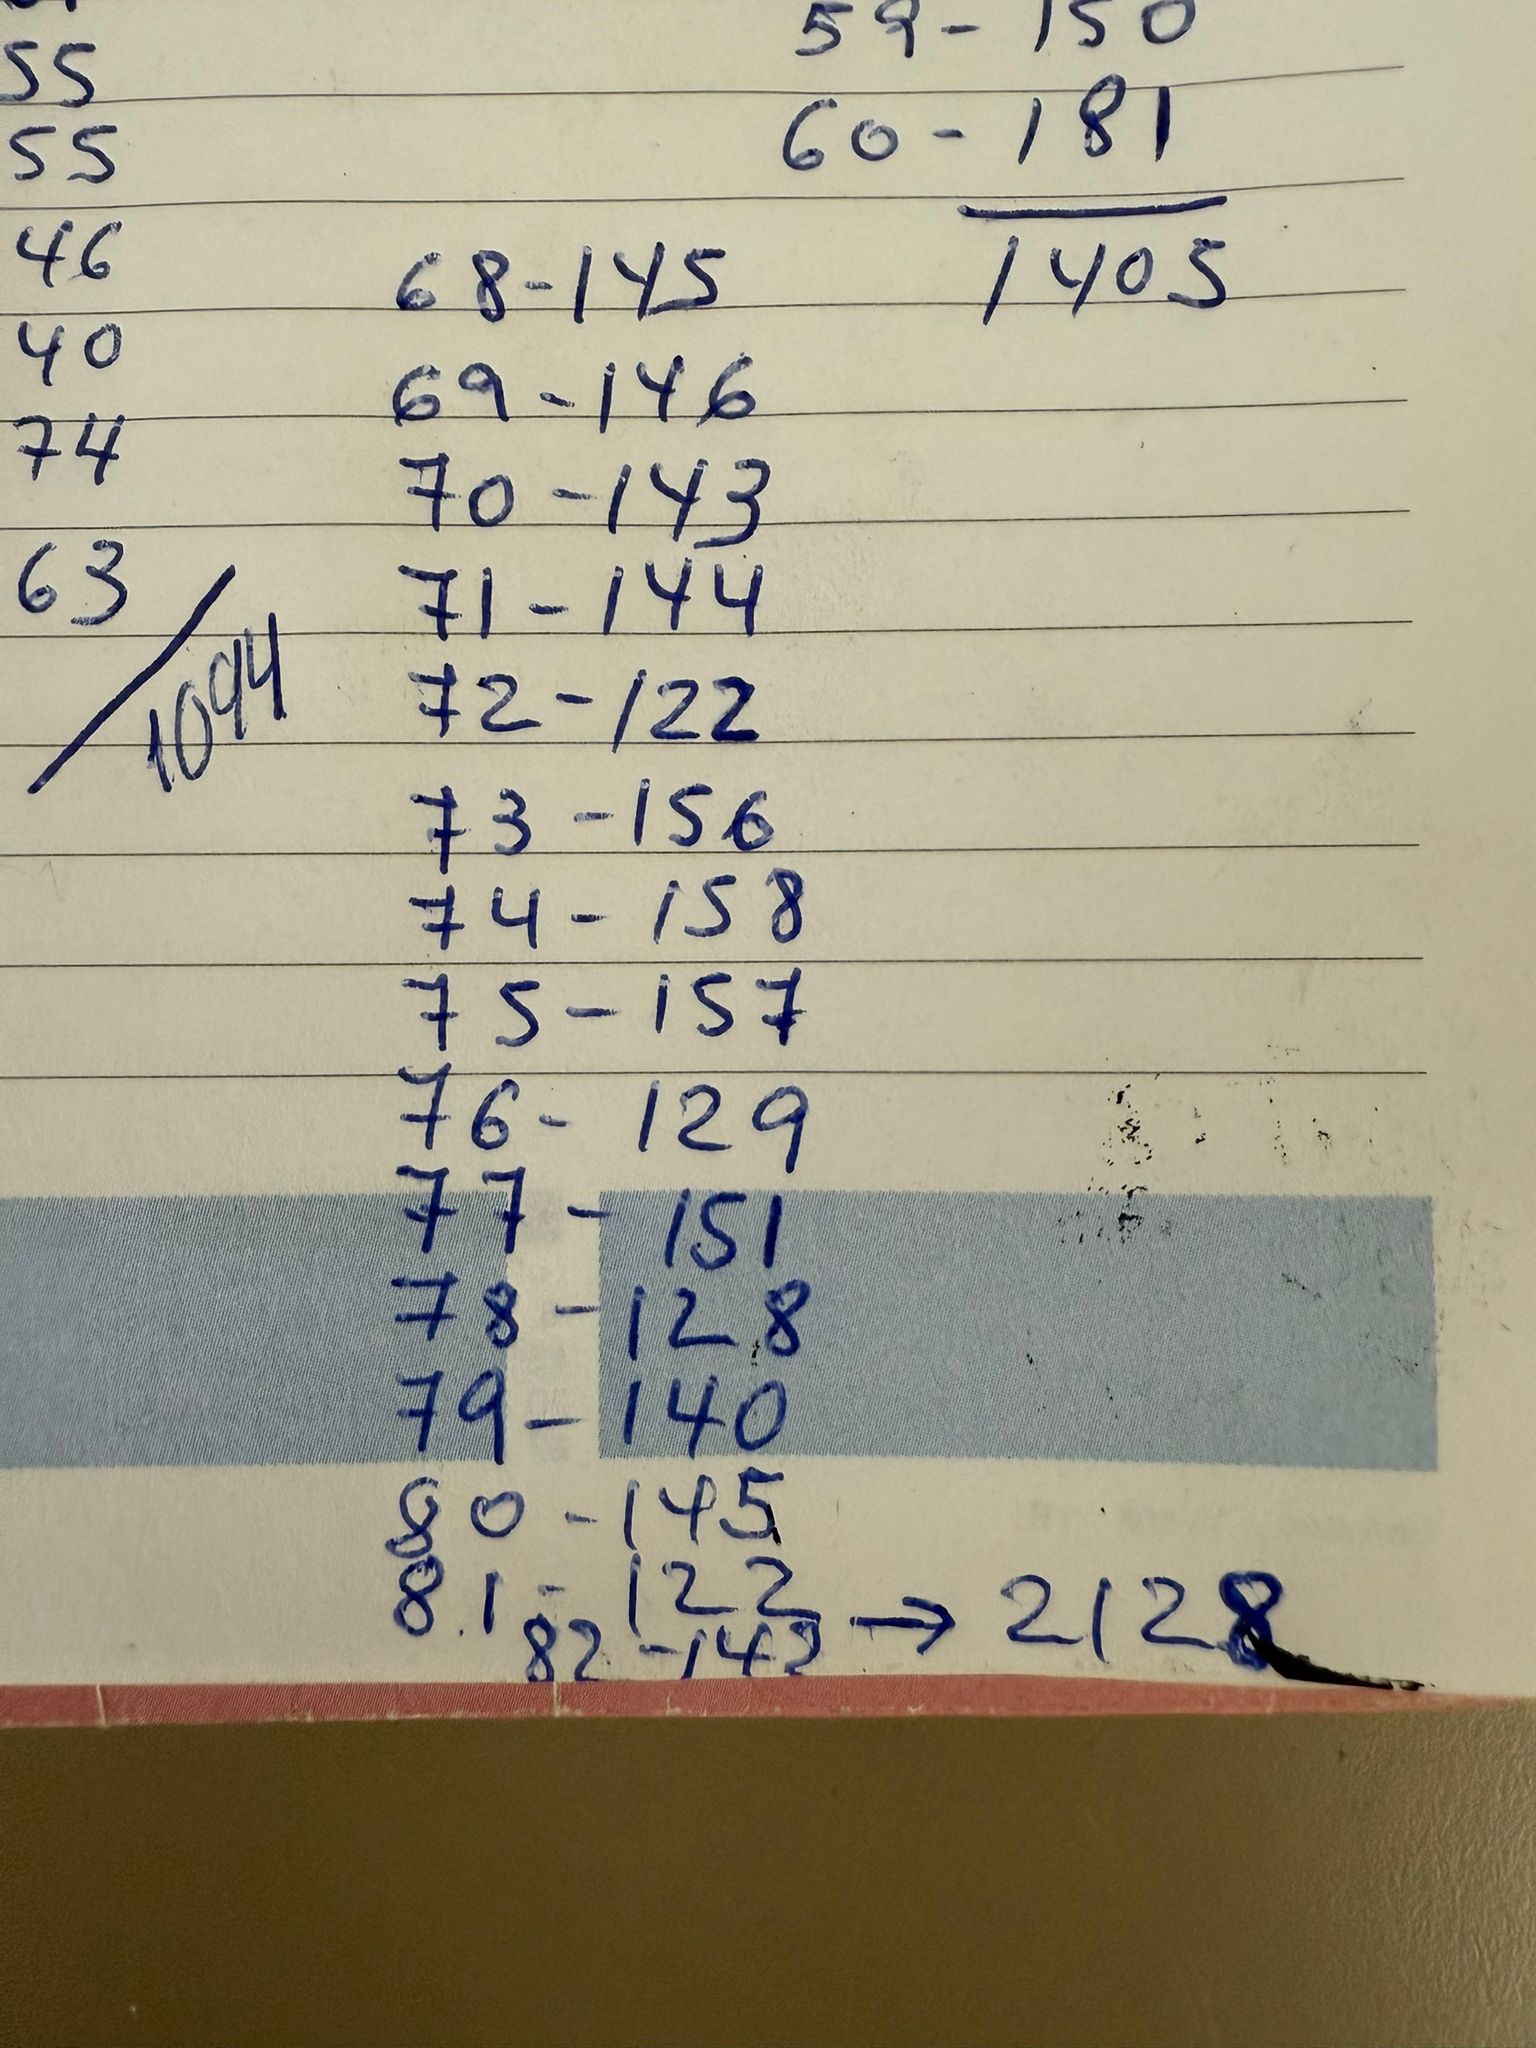 55
55
46
40
74
63
1094
68-145
69-146
70-143
71-144
72-122
73-156
74-158
75-157
76-129
77-151
78-128
79-140
80-145
81-122
82-142 → 2128
59-150
60-181
1405